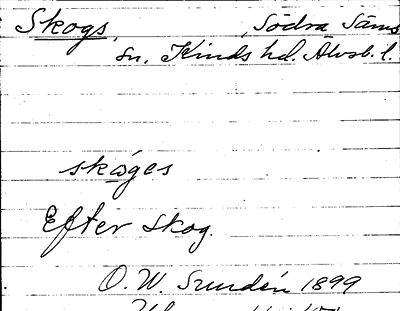 Skogs, , Södra Säms
sn, Kinds hd. Älvsb. l.
skóges
Efter skog.
O. W. Sundén 1899